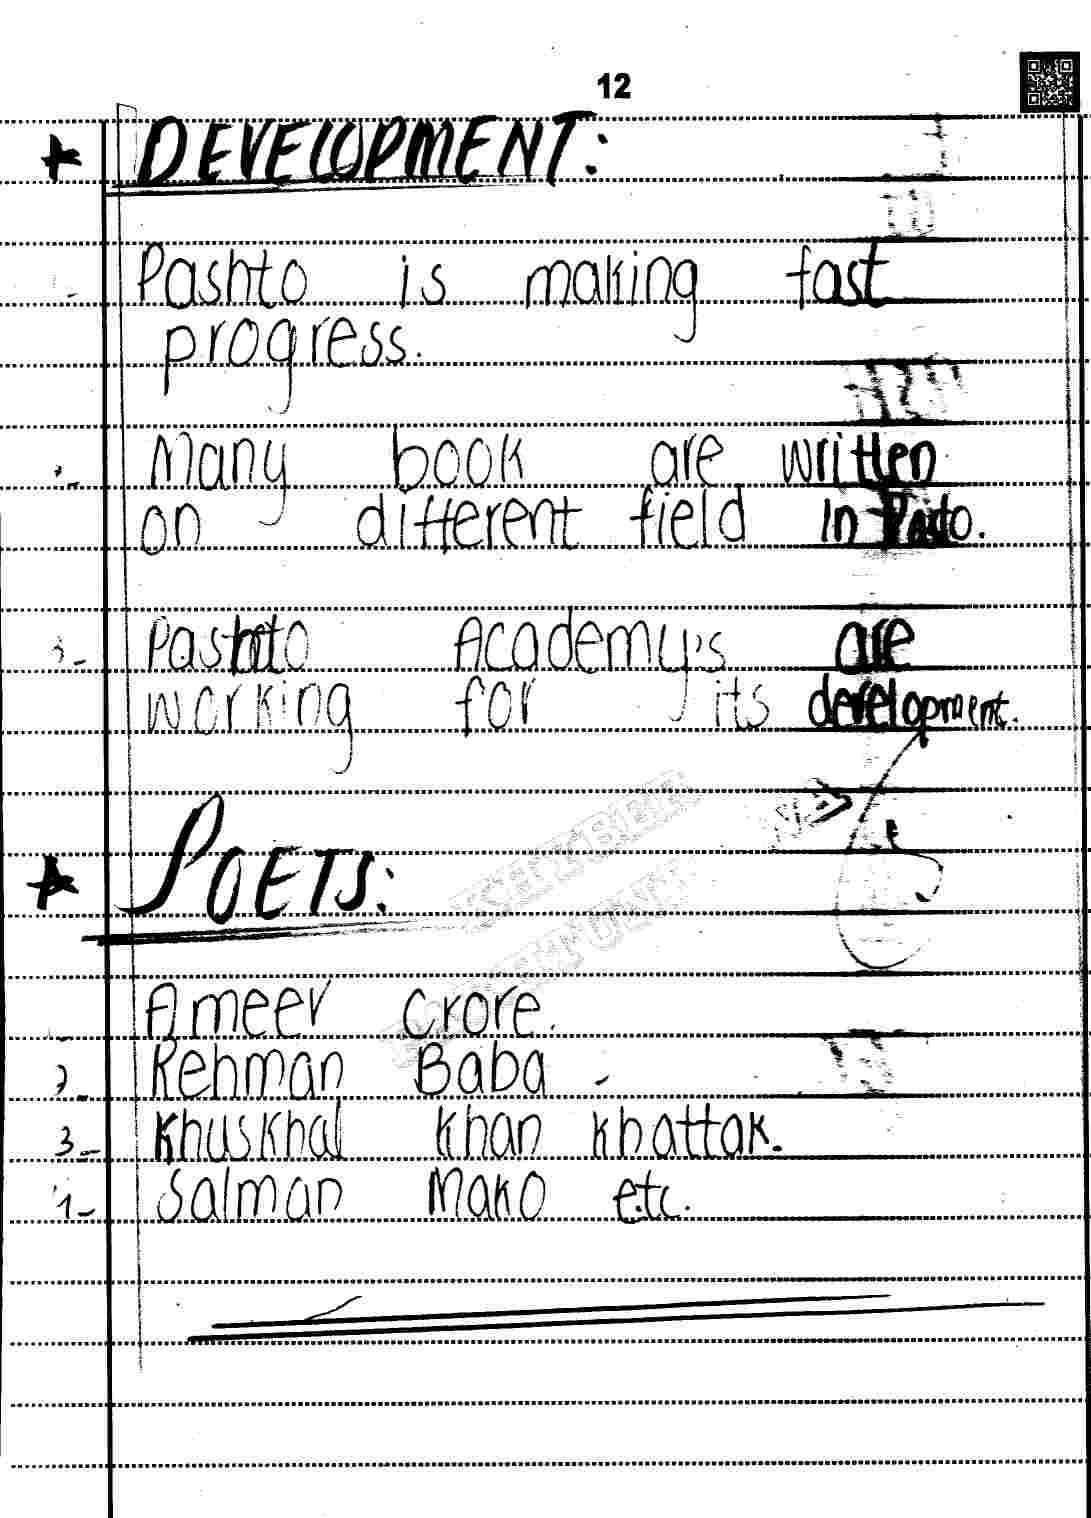 12
★ DEVELOPMENT:
Pashto is making fast
progress.
Many book are written
on different field in Pasto.
3- Pashto Academy's are
working for its development.
★ POETS:
KHYBER
PAKHTUNK
Ameer Crore.
2- Rehman Baba -
3- Khuskhal Khan Khattak.
4- Salman Mako etc.